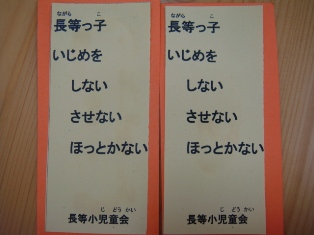 ながら こ
長等っ子
いじめを
しない
させない
ほっとかない
じ どう かい
長等小児童会
ながら こ
長等っ子
いじめを
しない
させない
ほっとかない
じ どう かい
長等小児童会